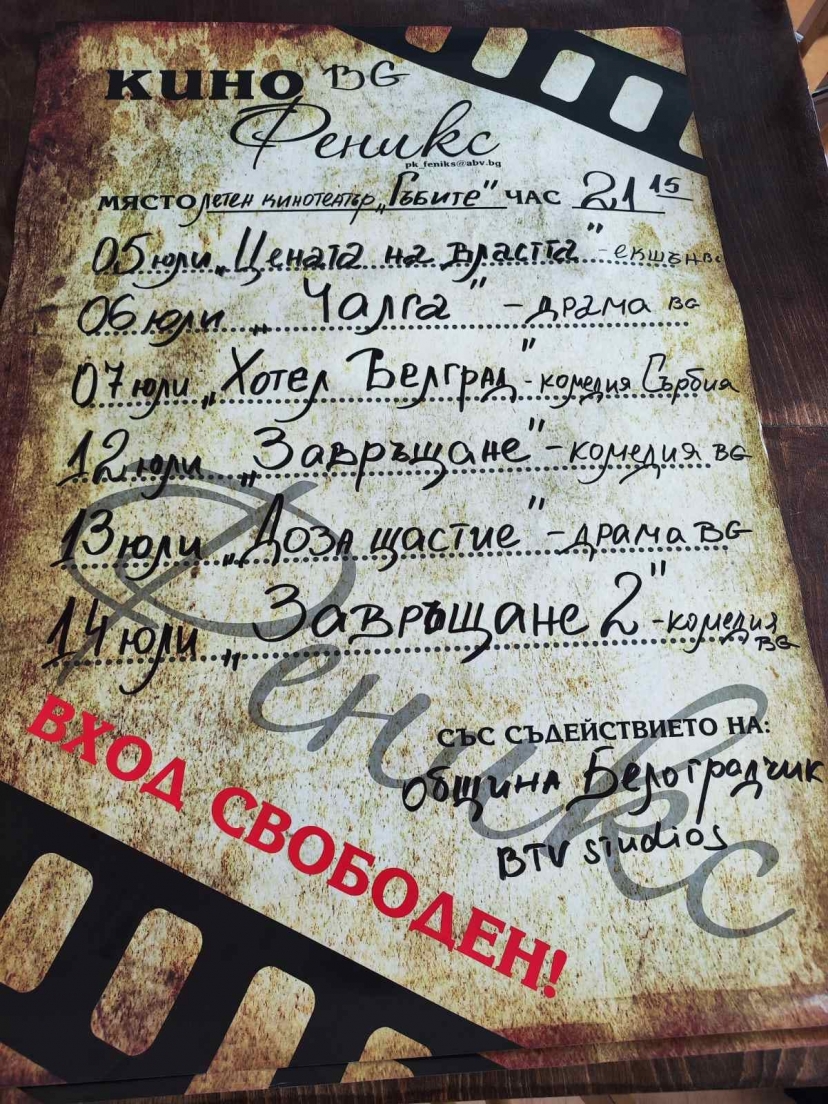 КИНО BG
Феникс
pk_feniks@abv.bg
МЯСТО летен кинотеатър „Гъбите" ЧАС 21 15
05 юли „Цената на властта" - екшън BG
06 юли „Чалга" - драма BG
07 юли „Хотел Белград" - комедия Сърбия
12 юли „Завръщане" - комедия BG
13 юли „Доза щастие" - драма BG
14 юли „Завръщане 2" - комедия BG
Феникс
ВХОД СВОБОДЕН!
СЪС СЪДЕЙСТВИЕТО НА:
община Белоградчик
BTV studios